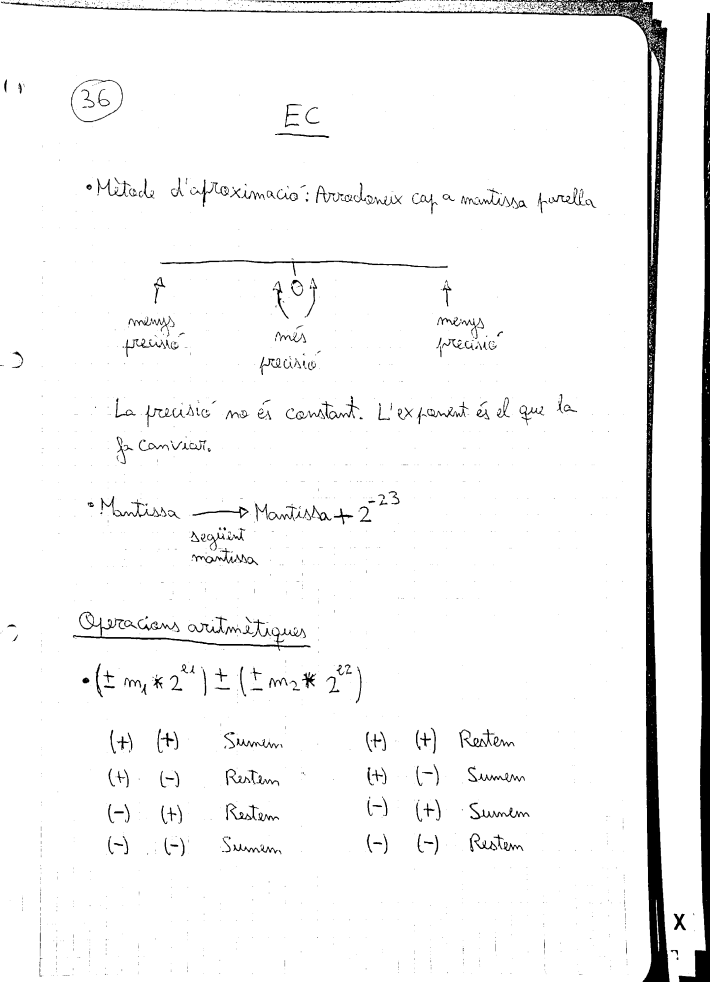 36
EC
• Mètode d'aproximació: Arrodoneix cap a mantissa parella
0
menys precisió
més precisió
menys precisió
La precisió no és constant. L'exponent és el que la
fa canviar.
• Mantissa → Mantissa + 2^-23
següent
mantissa
Operacions aritmètiques
• (± m1 * 2^e1) ± (± m2 * 2^e2)
(+) (+) Sumem (+) (+) Restem
(+) (-) Restem (+) (-) Sumem
(-) (+) Restem (-) (+) Sumem
(-) (-) Sumem (-) (-) Restem
X